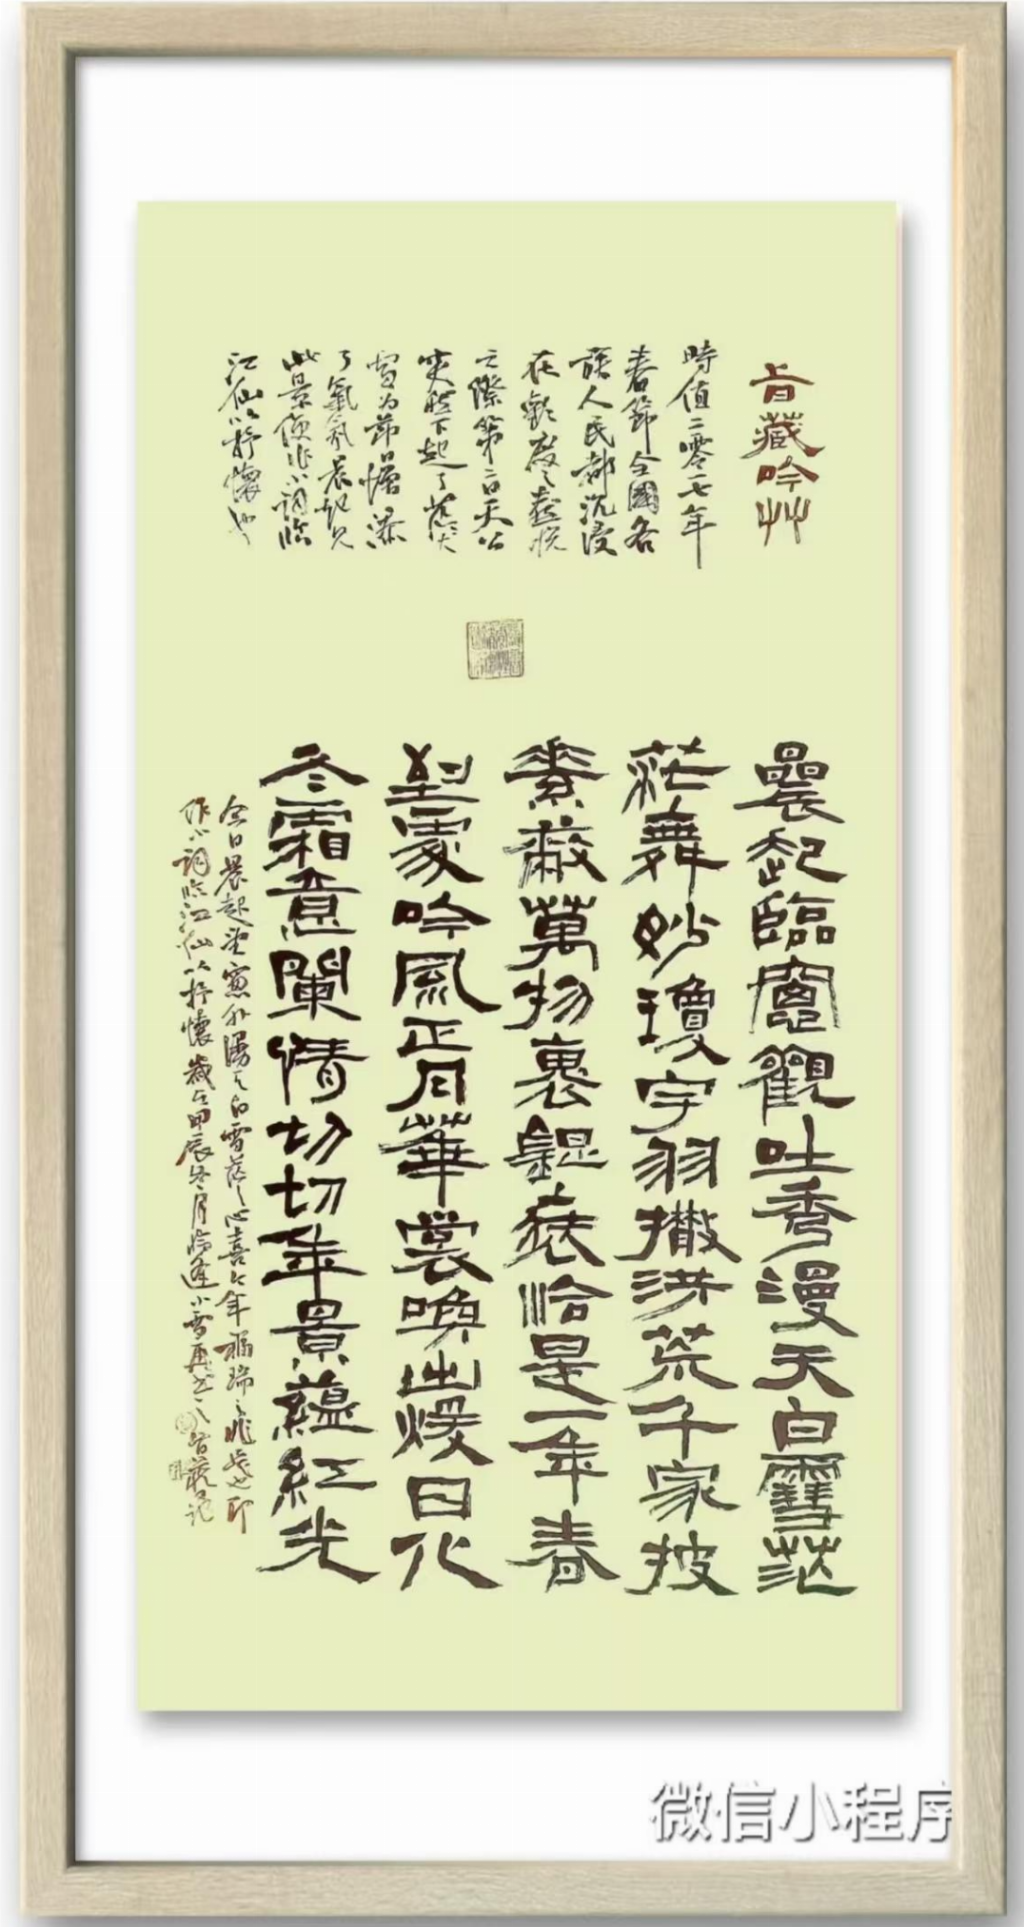 旨藏吟艸
時值二零一七年
春節全國各
族人民都沉浸
在歡度喜悦
之際第二日天公
突然下起了蕉大
雪为節日增添
了氣氛晨起见
此景便作小詞临
江仙以抒懷也
晨起臨窗觀吐秀漫天白雪茫
茫舞妙瓊宇羽撒洪荒千家披
素蔽萬物裹銀裝恰是一年春
聖處吟風正月華裳喚出煖日化
冬霜意闌情切切年景蘊紅光
今日晨起望窗外漫天白雪落心喜今年福瑞之兆步也即
作小詞临江仙以抒懷歲在甲辰冬月临逢小雪再書之旨藏記
微信小程序